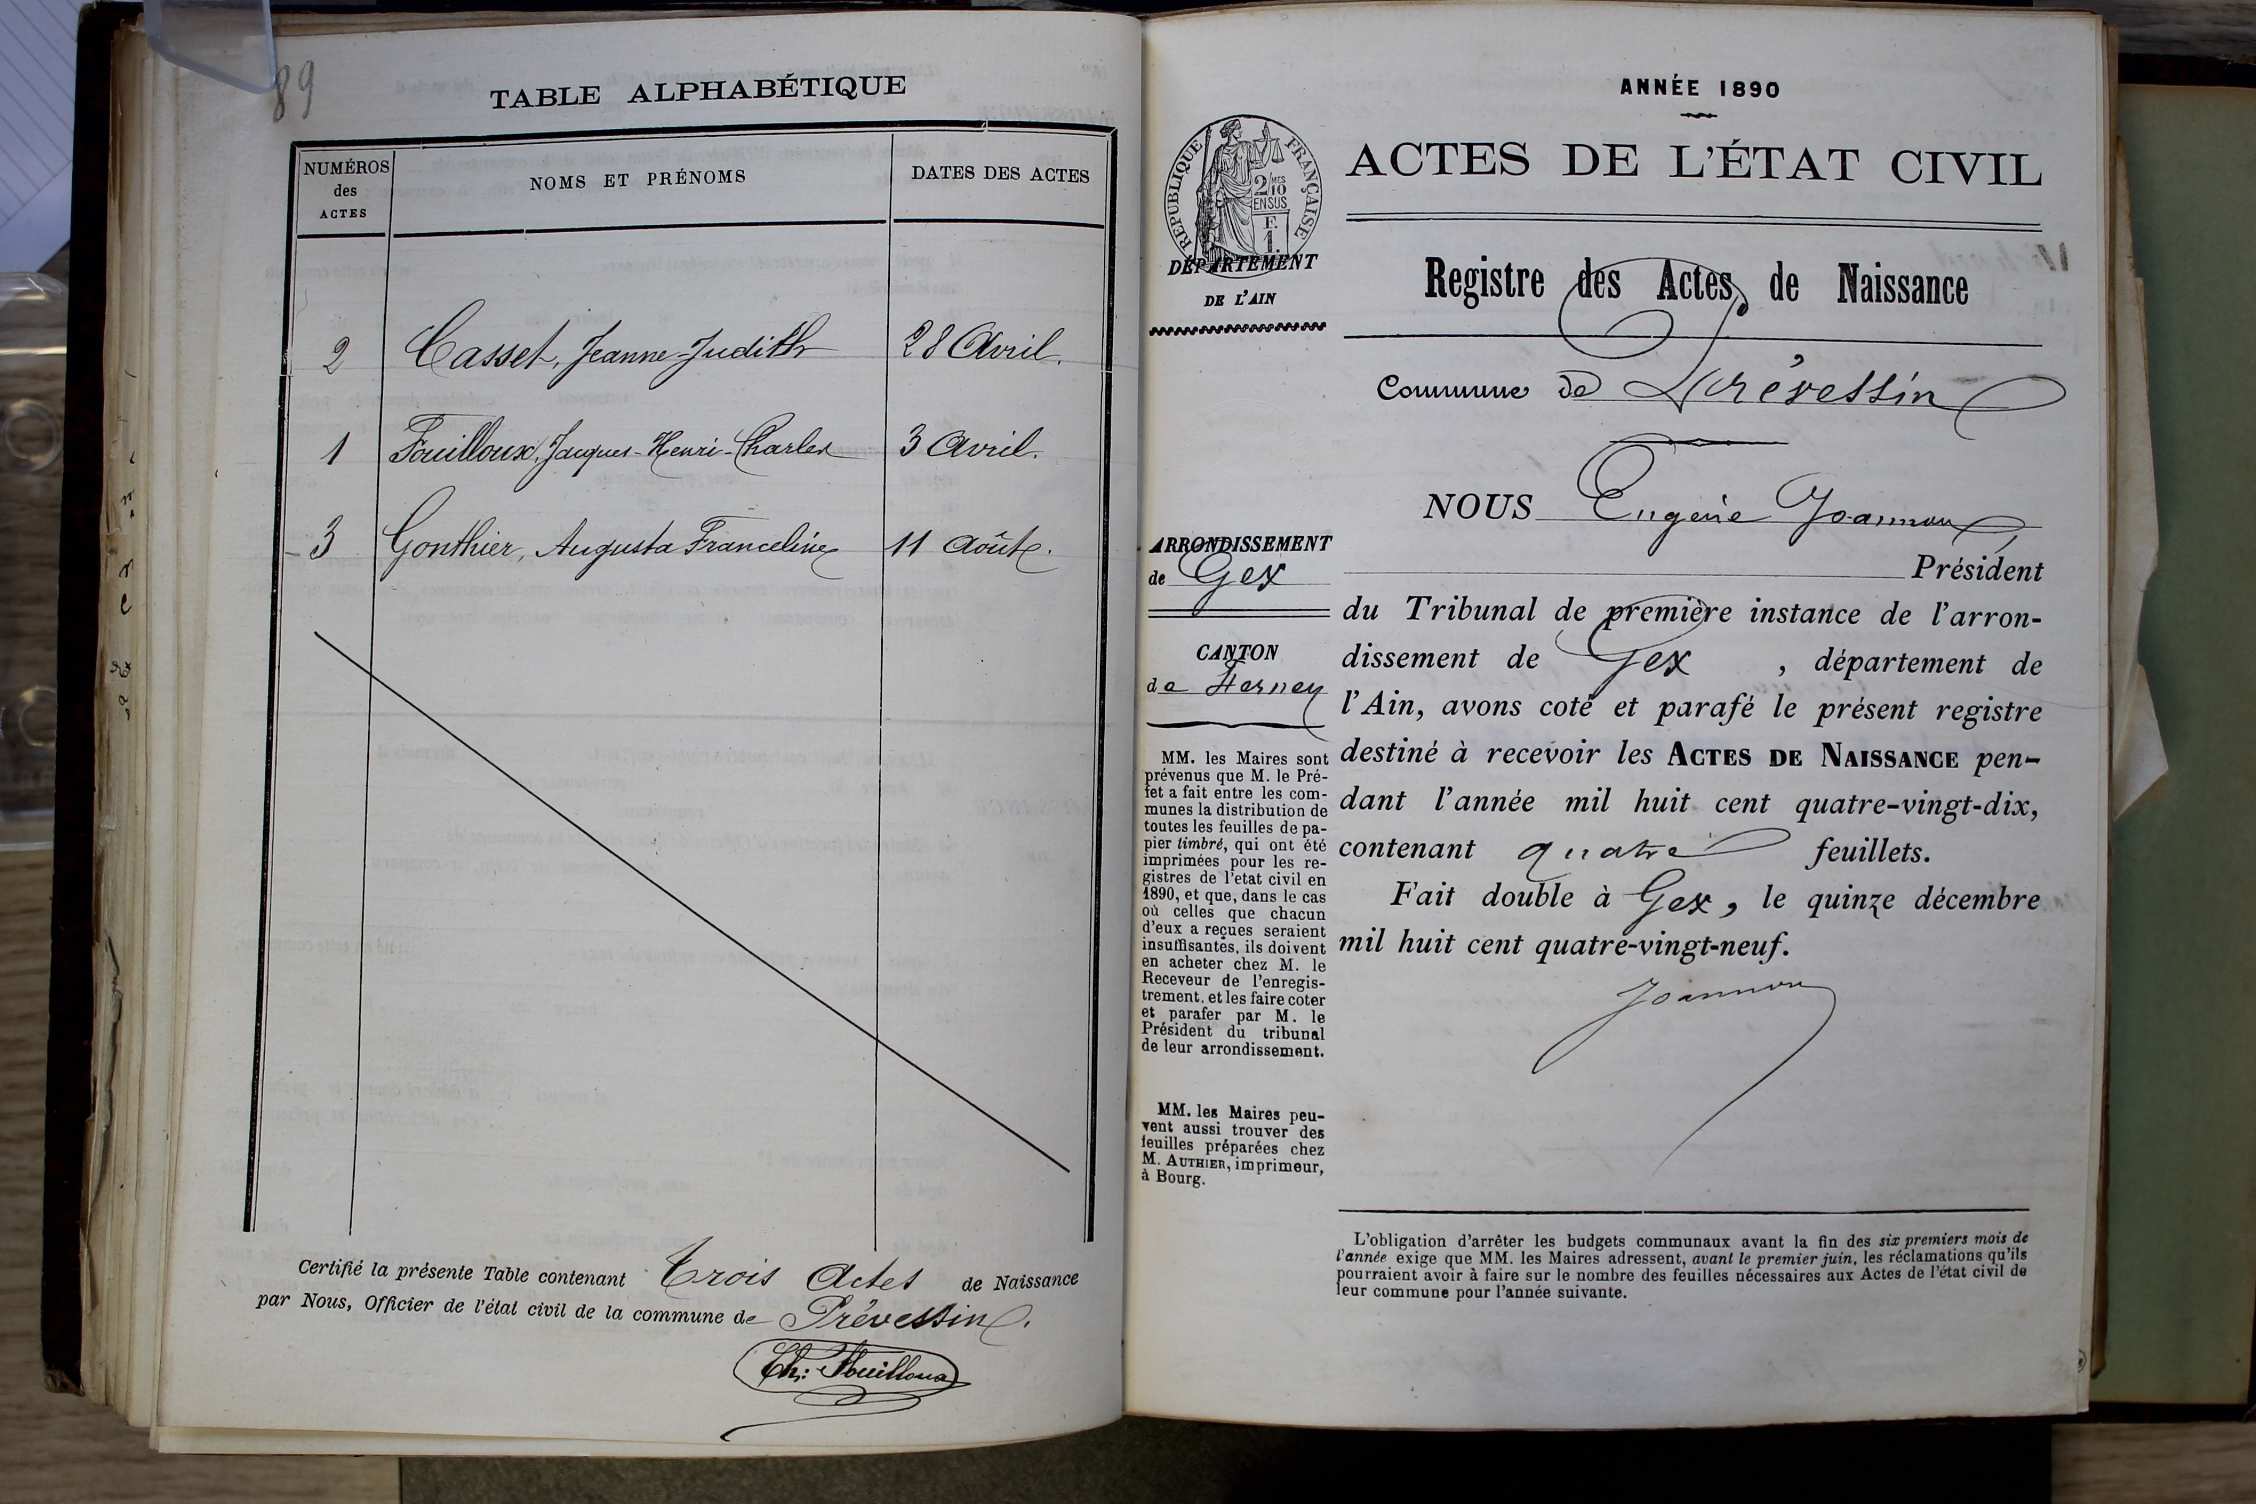 89
TABLE ALPHABÉTIQUE
NUMÉROS
des
ACTES
NOMS ET PRÉNOMS
DATES DES ACTES
2 Casset, Jeanne-Judith 28 Avril.
1 Fouilloux, Jacques-Henri-Charles 3 Avril.
3 Gonthier, Augusta Franceline 11 Août.
Certifié la présente Table contenant trois Actes de Naissance
par Nous, Officier de l'état civil de la commune de Prévessin.
Ch: Fouilloux
ANNÉE 1890
ACTES DE L'ÉTAT CIVIL
RÉPUBLIQUE FRANÇAISE
2/10 MES
EN SUS
F.
1.
DÉPARTEMENT
DE L'AIN
Registre des Actes de Naissance
Commune de Prévessin
NOUS Eugène Joannon,
Président
du Tribunal de première instance de l'arron-
dissement de Gex, département de
l'Ain, avons coté et parafé le présent registre
destiné à recevoir les ACTES DE NAISSANCE pen-
dant l'année mil huit cent quatre-vingt-dix,
contenant quatre feuillets.
Fait double à Gex, le quinze décembre
mil huit cent quatre-vingt-neuf.
Joannon
ARRONDISSEMENT
de Gex
CANTON
de Ferney
MM. les Maires sont
prévenus que M. le Pré-
fet a fait entre les com-
munes la distribution de
toutes les feuilles de pa-
pier timbré, qui ont été
imprimées pour les re-
gistres de l'etat civil en
1890, et que, dans le cas
où celles que chacun
d'eux a reçues seraient
insuffisantes, ils doivent
en acheter chez M. le
Receveur de l'enregis-
trement, et les faire coter
et parafer par M. le
Président du tribunal
de leur arrondissement.
MM. les Maires peu-
vent aussi trouver des
feuilles préparées chez
M. AUTHIER, imprimeur,
à Bourg.
L'obligation d'arrêter les budgets communaux avant la fin des six premiers mois de
l'année exige que MM. les Maires adressent, avant le premier juin, les réclamations qu'ils
pourraient avoir à faire sur le nombre des feuilles nécessaires aux Actes de l'état civil de
leur commune pour l'année suivante.